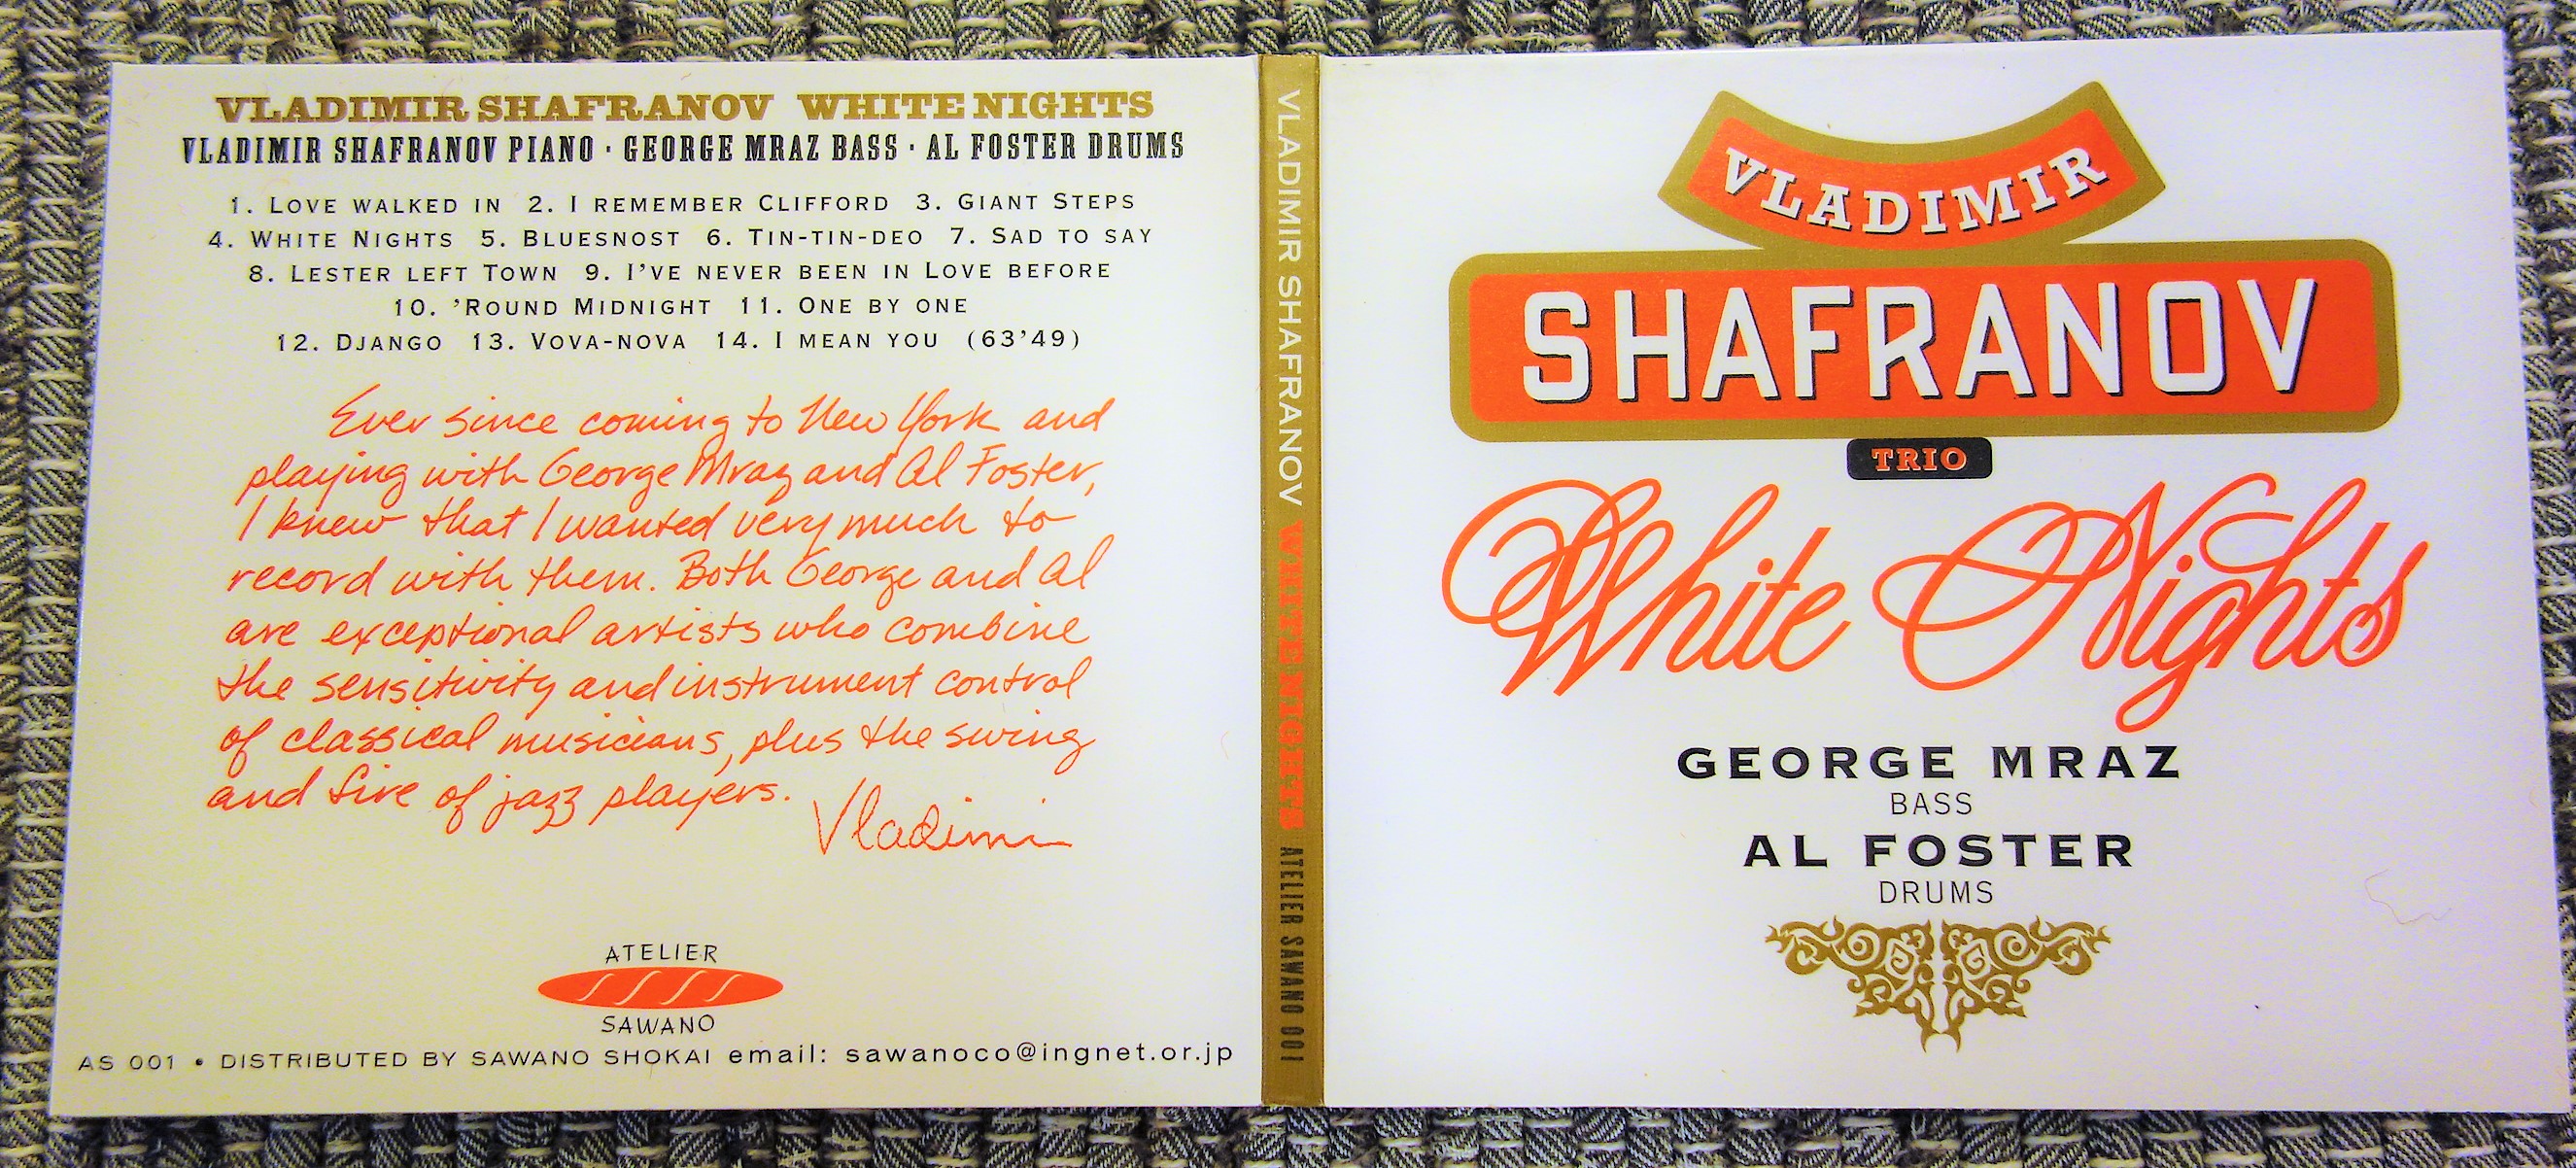 VLADIMIR SHAFRANOV WHITE NIGHTS
VLADIMIR SHAFRANOV PIANO · GEORGE MRAZ BASS · AL FOSTER DRUMS
1. LOVE WALKED IN 2. I REMEMBER CLIFFORD 3. GIANT STEPS
4. WHITE NIGHTS 5. BLUESNOST 6. TIN-TIN-DEO 7. SAD TO SAY
8. LESTER LEFT TOWN 9. I'VE NEVER BEEN IN LOVE BEFORE
10. 'ROUND MIDNIGHT 11. ONE BY ONE
12. DJANGO 13. VOVA-NOVA 14. I MEAN YOU (63'49)
Ever since coming to New York and
playing with George Mraz and Al Foster,
I knew that I wanted very much to
record with them. Both George and Al
are exceptional artists who combine
the sensitivity and instrument control
of classical musicians, plus the swing
and fire of jazz players.
Vladimir
ATELIER
SAWANO
AS 001 • DISTRIBUTED BY SAWANO SHOKAI email: sawanoco@ingnet.or.jp
VLADIMIR SHAFRANOV WHITE NIGHTS ATELIER SAWANO 001
VLADIMIR
SHAFRANOV
TRIO
White Nights
GEORGE MRAZ
BASS
AL FOSTER
DRUMS